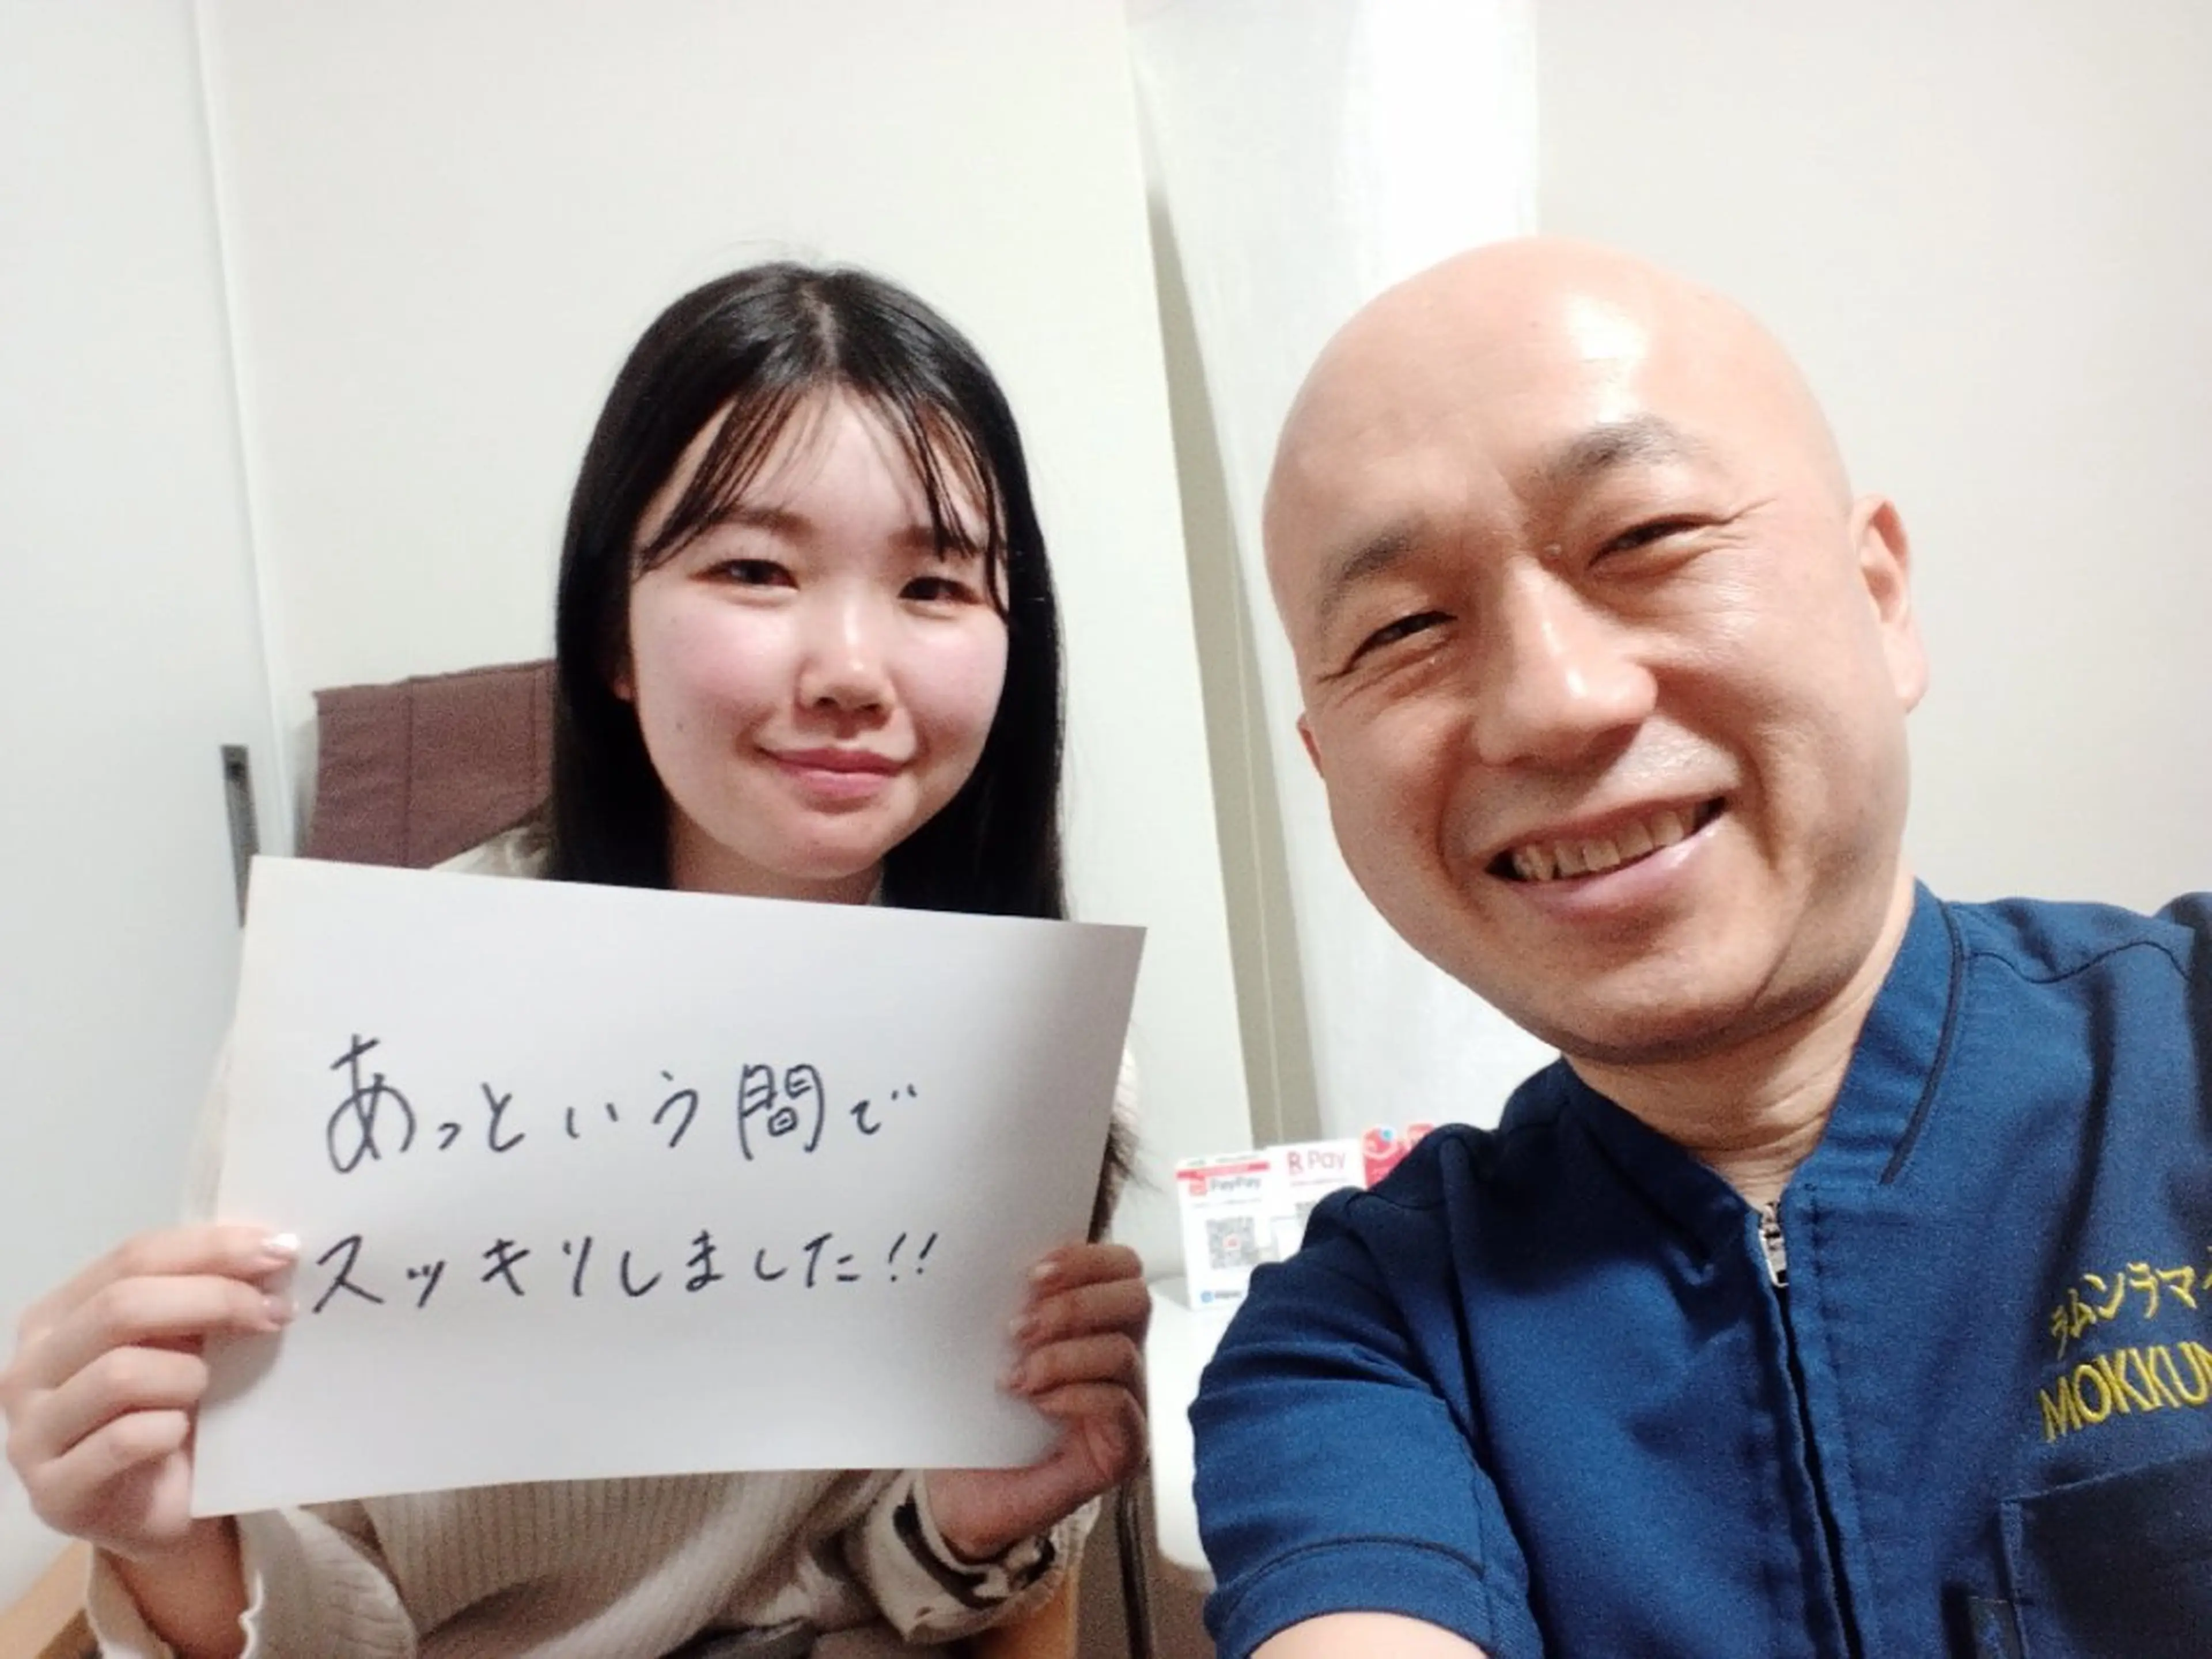 あっという間で
スッキリしました!!
PayPay
R Pay
ラムンラマ
MOKKUN